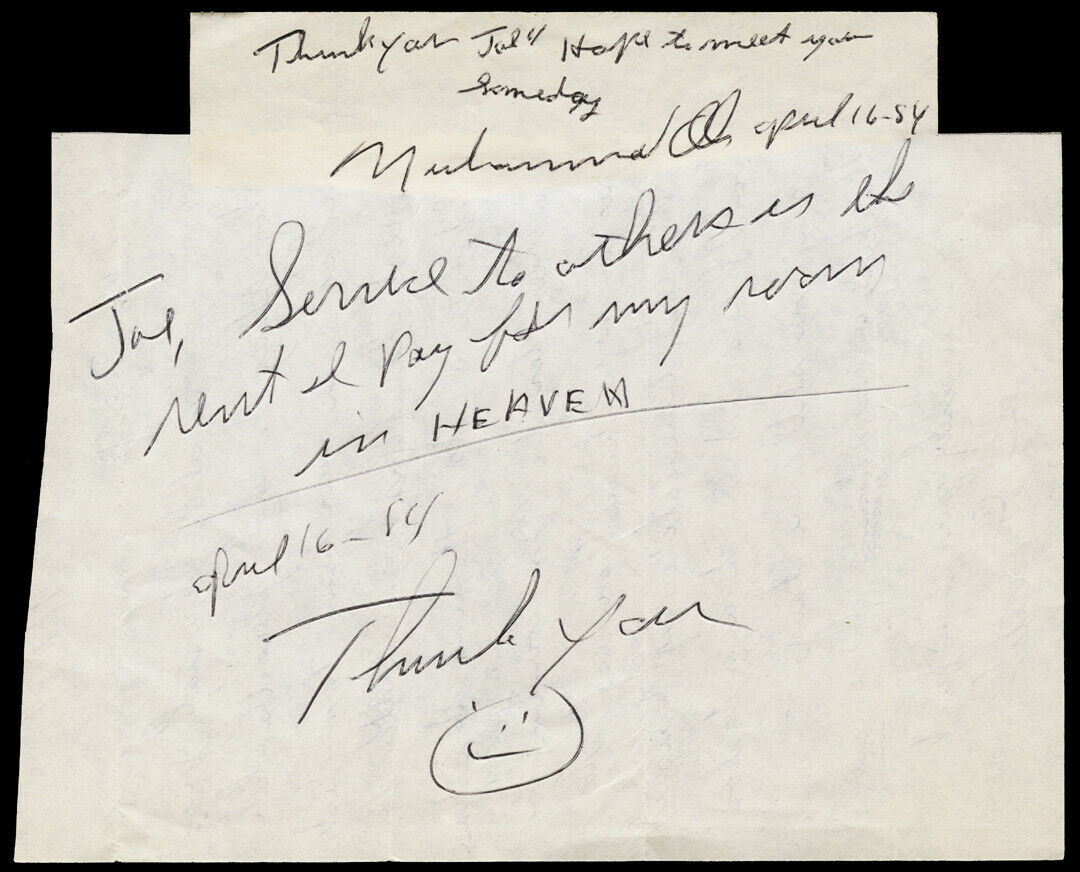 Thank you Joe" Hope to meet you
someday
Muhammad Ali april 16-84
Joe, Service to others is the
rent I Pay for my room
in HEAVEN
april 16-84
Thank You